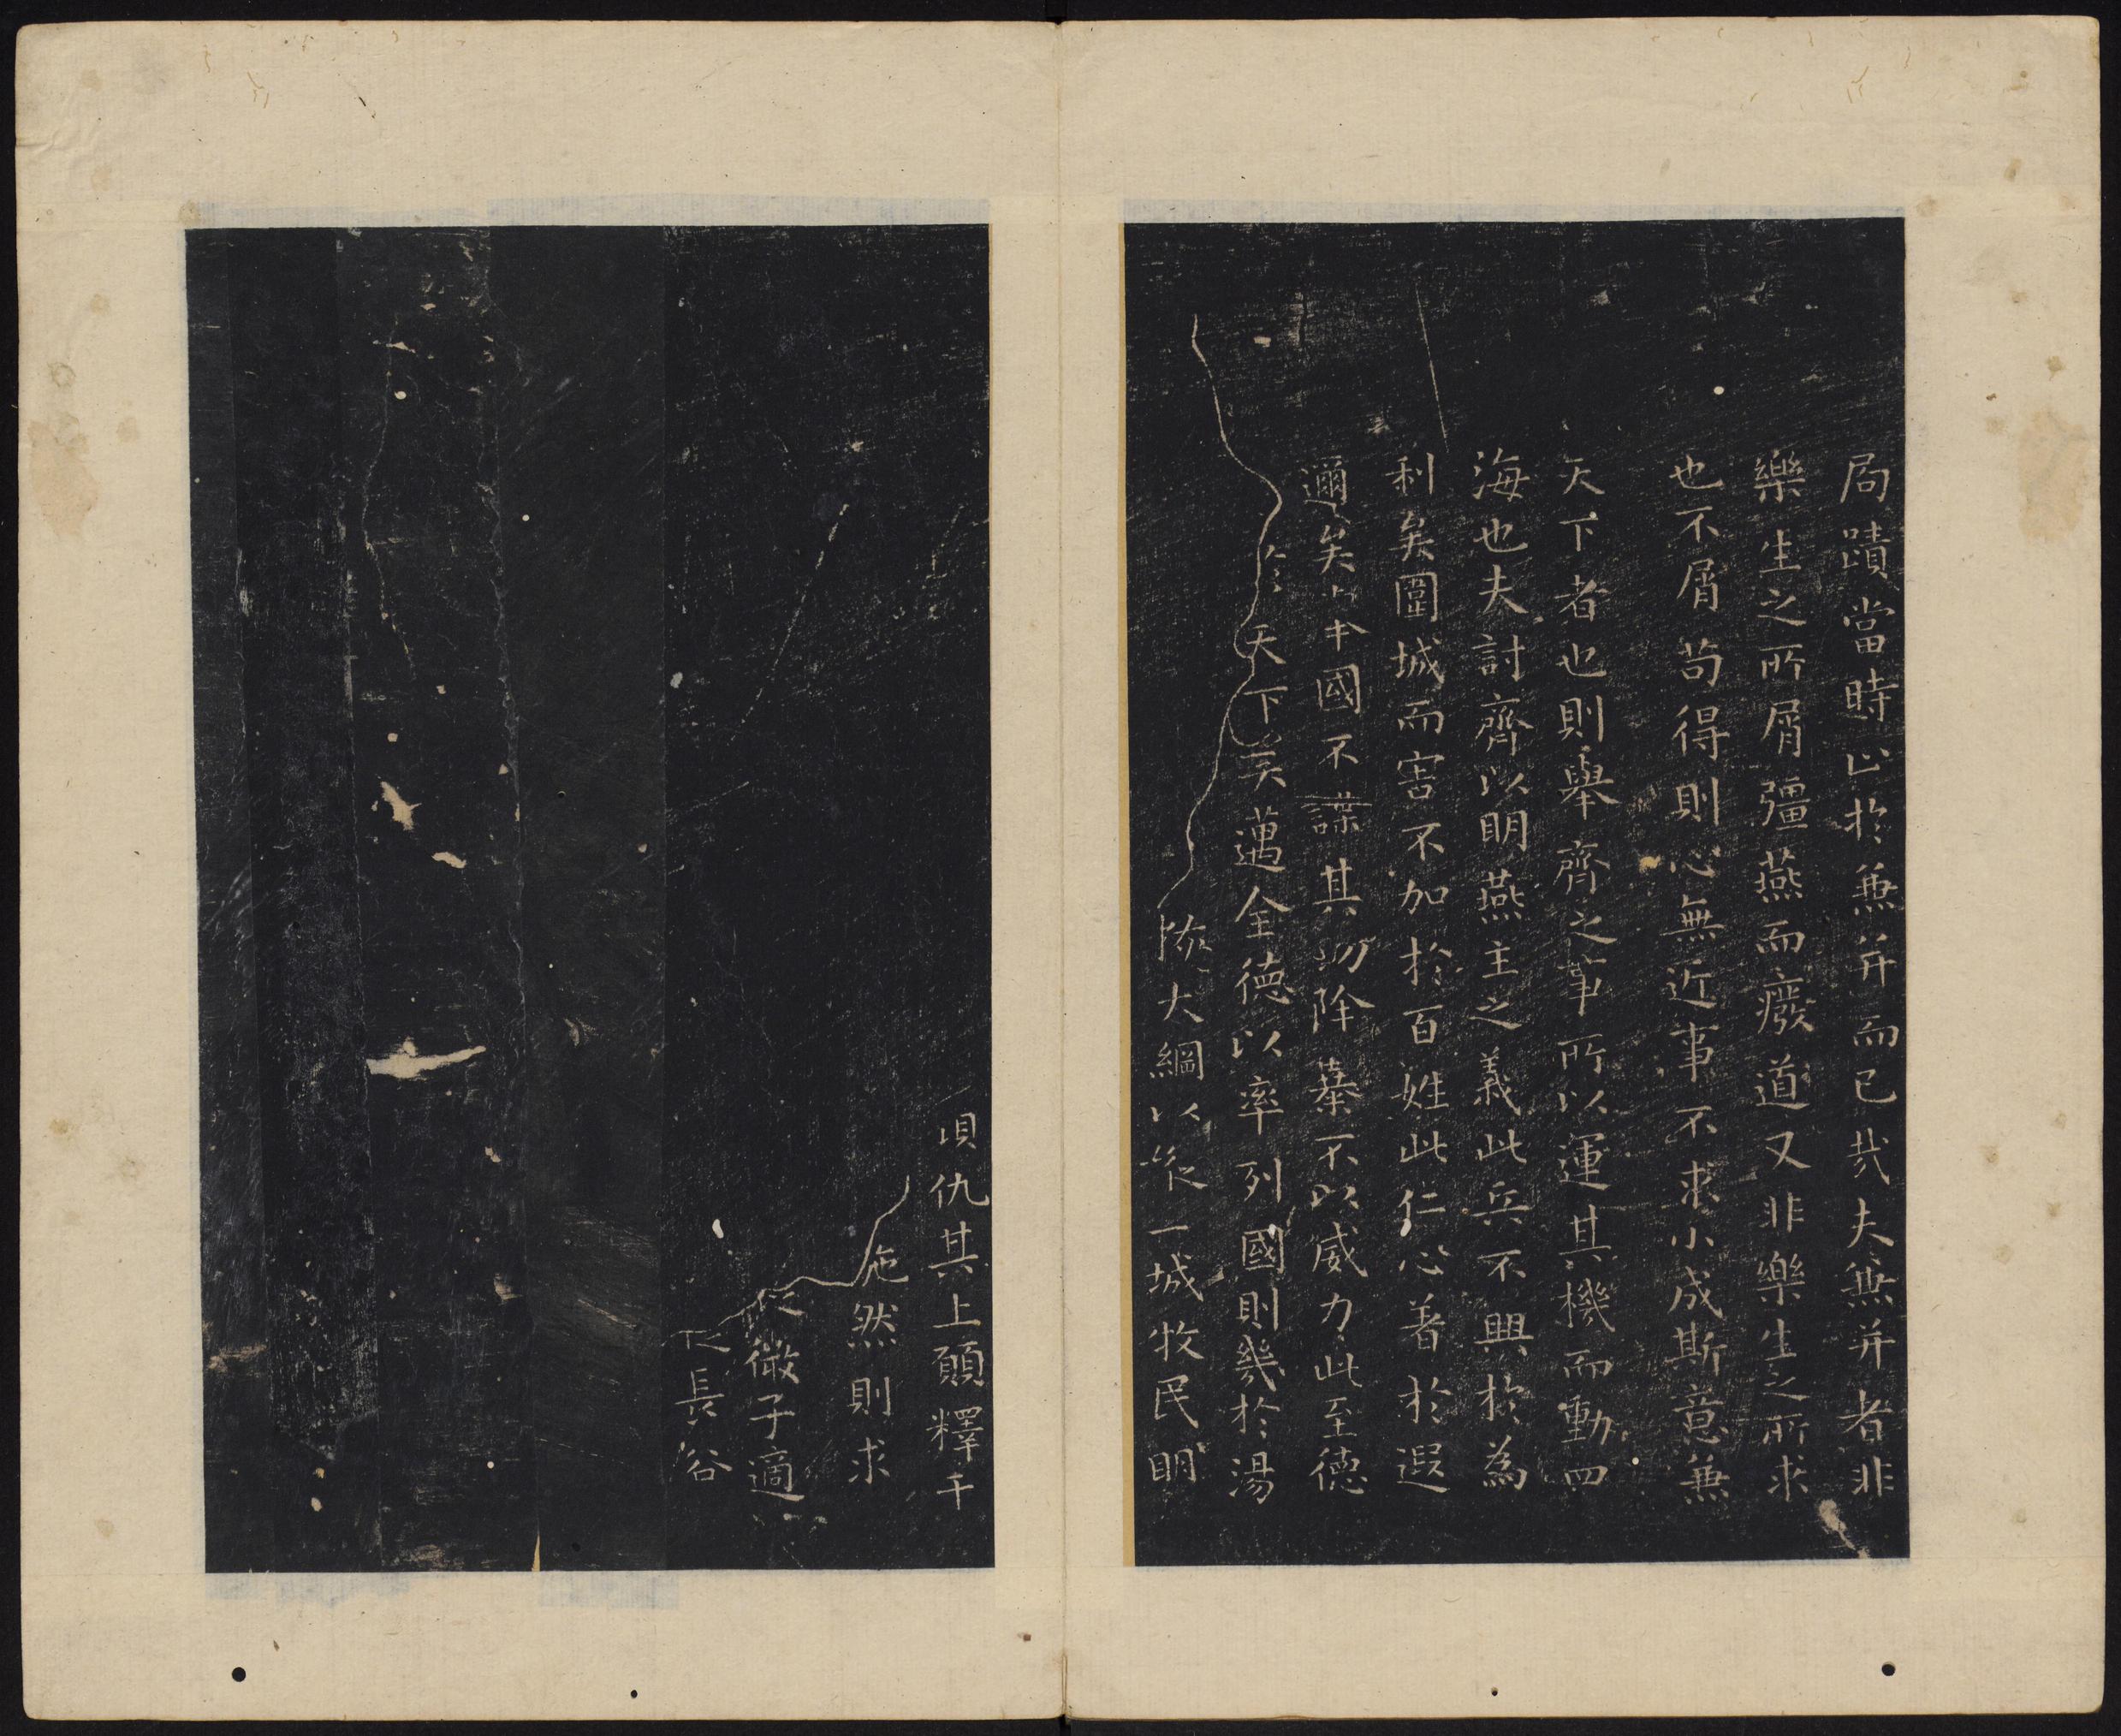 局蹟當時止於兼并而已哉夫兼并者非
樂生之所屑彊燕而癈道又非樂生之所求
也不屑苟得則心無近事不求小成斯意兼
天下者也則舉齊之事所以運其機而動四
海也夫討齊以明燕主之義此兵不興於為
利矣圍城而害不加於百姓此仁心著於遐
邇矣國不謀其功除暴不以威力此至德
於天下矣邁全德以率列國則幾於湯
大綱以縱一城牧民明
仇其上願釋干
施然則求
從微子適
長容